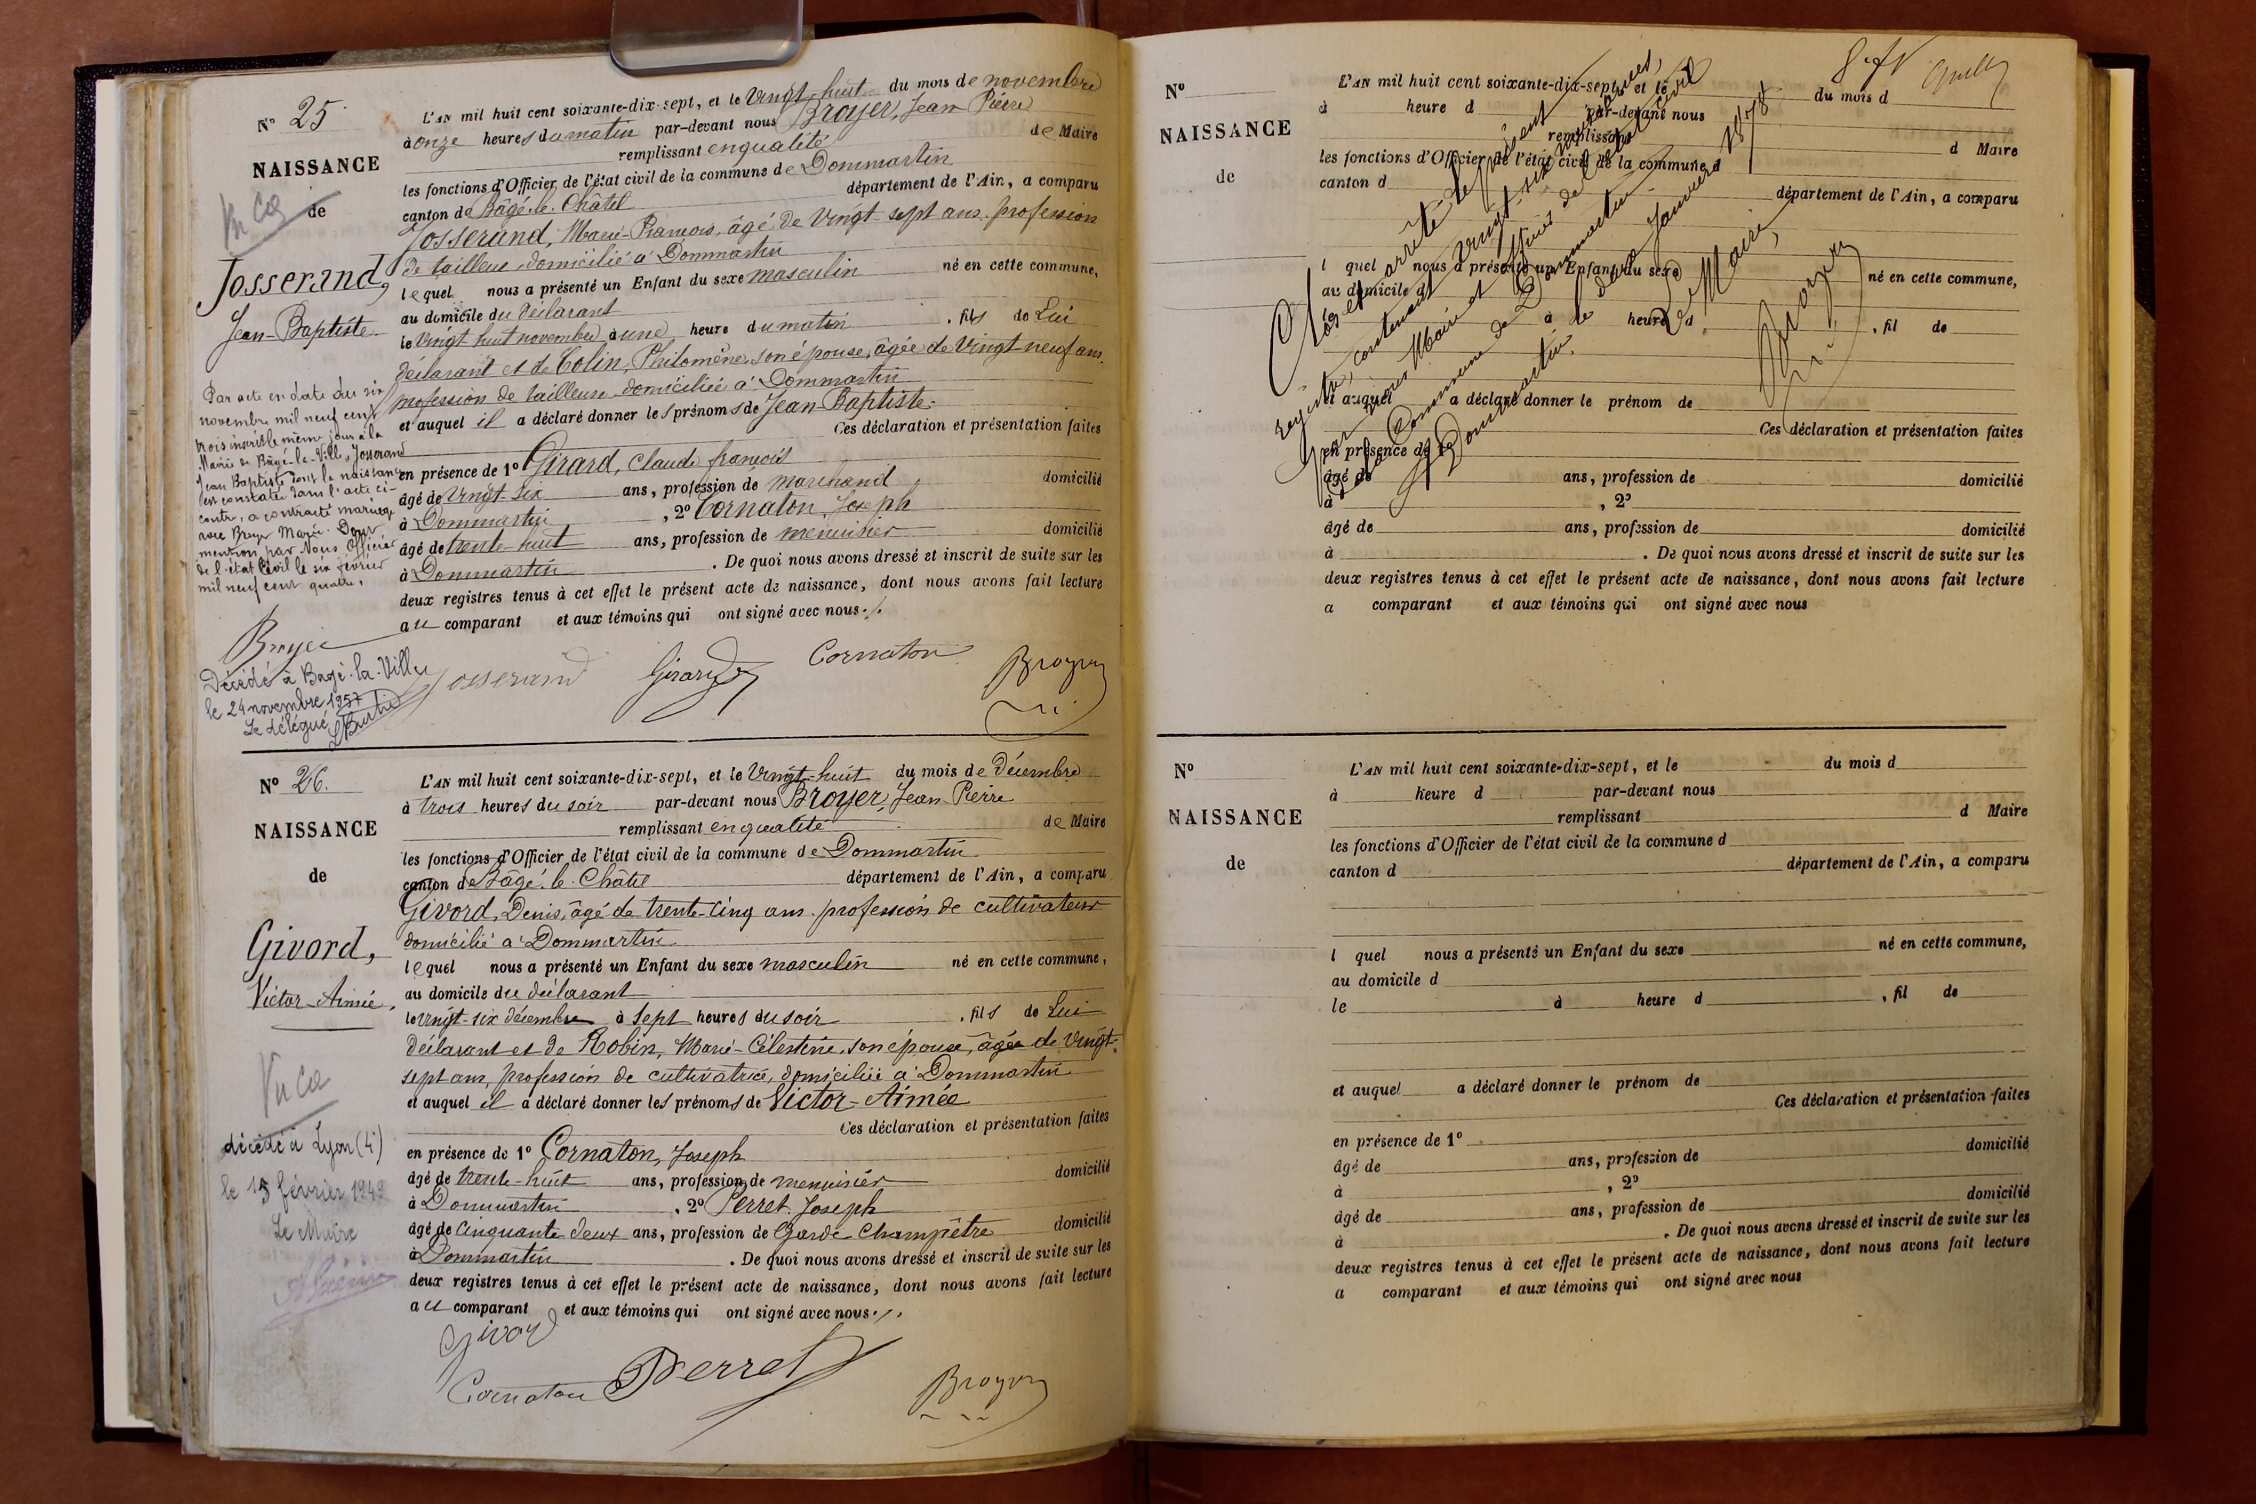 N° 25
NAISSANCE
de
Vu Ca
Josserand,
Jean-Baptiste
Par acte en date du six
novembre mil neuf cent
trois inscrit le même jour à la
Mairie de Bâgé-la-Ville, Josserand
Jean Baptiste dont la naissance
est constatée dans l'acte ci-
contre, a contracté mariage
avec Broyer Marie. Dont
mention par Nous Officier
de l'état civil le six février
mil neuf cent quatre.
Broyer
Décédé à Bagé-la-Ville
le 24 novembre 1957
Le délégué
L'AN mil huit cent soixante-dix-sept, et le vingt-huit du mois de novembre
à onze heures du matin par-devant nous Broyer, Jean Pierre
remplissant en qualité de Maire
les fonctions d'Officier de l'état civil de la commune de Dommartin
canton de Bâgé-le-Châtel département de l'Ain, a comparu
Josserand, Marie-François, âgé de vingt-sept ans, profession
de tailleur domicilié à Dommartin
lequel nous a présenté un Enfant du sexe masculin né en cette commune,
au domicile du déclarant
le vingt huit novembre à une heure du matin, fils de Lui
déclarant et de Colin, Philomène, son épouse, âgée de vingt-neuf ans
profession de tailleuse domiciliée à Dommartin
et auquel il a déclaré donner les prénoms de Jean-Baptiste.
Ces déclaration et présentation faites
en présence de 1° Girard, Claude françois
âgé de vingt-six ans, profession de marchand domicilié
à Dommartin, 2° Cornaton, Joseph
âgé de trente-huit ans, profession de menuisier domicilié
à Dommartin. De quoi nous avons dressé et inscrit de suite sur les
deux registres tenus à cet effet le présent acte de naissance, dont nous avons fait lecture
au comparant et aux témoins qui ont signé avec nous.
Josserand Girard Cornaton Broyer
N° 26.
NAISSANCE
de
Givord,
Victor-Aimée,
Vu Ca
décédé à Lyon (4e)
le 15 février 1942
Le Maire
L'AN mil huit cent soixante-dix-sept, et le vingt-huit du mois de Décembre
à trois heures du soir par-devant nous Broyer, Jean Pierre
remplissant en qualité de Maire
les fonctions d'Officier de l'état civil de la commune de Dommartin
canton de Bâgé-le-Châtel département de l'Ain, a comparu
Givord, Denis, âgé de trente-cinq ans, profession de cultivateur
domicilié à Dommartin
lequel nous a présenté un Enfant du sexe masculin né en cette commune,
au domicile du déclarant
le vingt-six décembre à sept heures du soir, fils de Lui
déclarant et de Robin, Marie-Célestine, son épouse, âgée de vingt-
sept ans, profession de cultivatrice, domiciliée à Dommartin
et auquel il a déclaré donner les prénoms de Victor-Aimée
Ces déclaration et présentation faites
en présence de 1° Cornaton, Joseph
âgé de trente-huit ans, profession de menuisier domicilié
à Dommartin, 2° Perret, Joseph
âgé de cinquante deux ans, profession de Garde Champêtre domicilié
à Dommartin. De quoi nous avons dressé et inscrit de suite sur les
deux registres tenus à cet effet le présent acte de naissance, dont nous avons fait lecture
au comparant et aux témoins qui ont signé avec nous.
Givord
Cornaton Perret Broyer
N°
NAISSANCE
de
L'AN mil huit cent soixante-dix-sept, et le du mois d
à heure d par-devant nous
remplissant d Maire
les fonctions d'Officier de l'état civil de la commune d
canton d département de l'Ain, a comparu
l quel nous a présenté un Enfant du sexe né en cette commune,
au domicile d
le à heure d, fil de
et auquel a déclaré donner le prénom de
Ces déclaration et présentation faites
en présence de 1°
âgé de ans, profession de domicilié
à, 2°
âgé de ans, profession de domicilié
à. De quoi nous avons dressé et inscrit de suite sur les
deux registres tenus à cet effet le présent acte de naissance, dont nous avons fait lecture
a comparant et aux témoins qui ont signé avec nous
Clos et arrêté le présent
registre, contenant vingt-six naissances,
par nous Maire et officier de l'état civil
de la Commune de Dommartin
à Dommartin, le deux Janvier 1878
Le Maire,
Broyer
N°
NAISSANCE
de
L'AN mil huit cent soixante-dix-sept, et le du mois d
à heure d par-devant nous
remplissant d Maire
les fonctions d'Officier de l'état civil de la commune d
canton d département de l'Ain, a comparu
l quel nous a présenté un Enfant du sexe né en cette commune,
au domicile d
le à heure d, fil de
et auquel a déclaré donner le prénom de
Ces déclaration et présentation faites
en présence de 1°
âgé de ans, profession de domicilié
à, 2°
âgé de ans, profession de domicilié
à. De quoi nous avons dressé et inscrit de suite sur les
deux registres tenus à cet effet le présent acte de naissance, dont nous avons fait lecture
a comparant et aux témoins qui ont signé avec nous